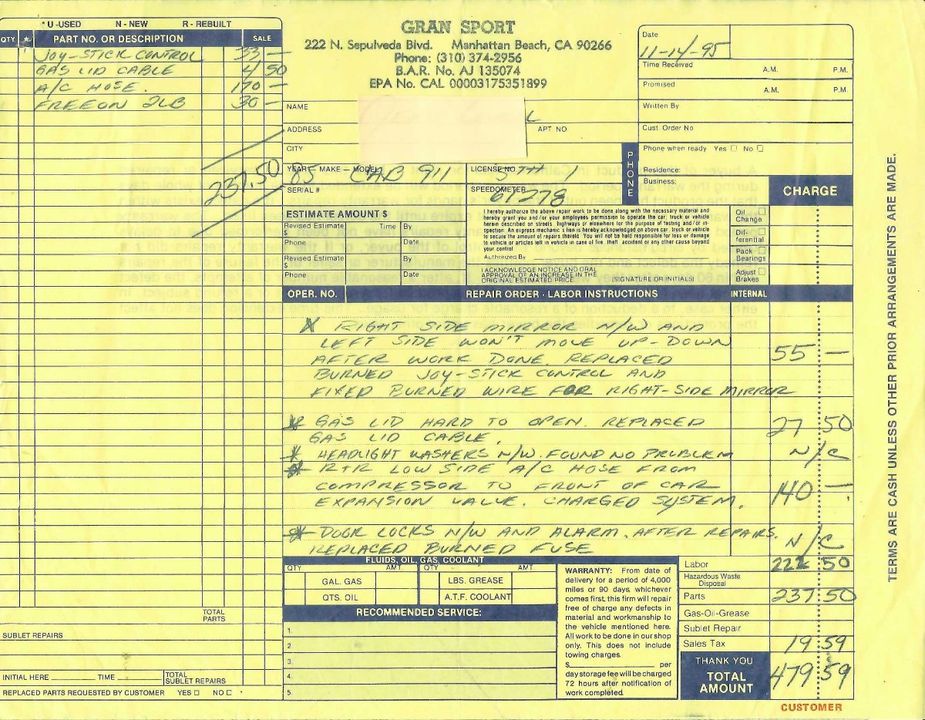 * U -USED N - NEW R - REBUILT
QTY * PART NO. OR DESCRIPTION SALE
JOY-STICK CONTROL 33 —
GAS LID CABLE 4 50
A/C HOSE. 170 —
FREEON 2LB 30 —
237.50
TOTAL PARTS
SUBLET REPAIRS
INITIAL HERE TIME TOTAL SUBLET REPAIRS
REPLACED PARTS REQUESTED BY CUSTOMER YES □ NO □
GRAN SPORT
222 N. Sepulveda Blvd. Manhattan Beach, CA 90266
Phone: (310) 374-2956
B.A.R. No. AJ 135074
EPA No. CAL 00003175351899
Date
11-14-95
Time Received A.M. P.M.
Promised A.M. P.M.
Written By
Cust. Order No
Phone when ready Yes □ No □
PHONE
Residence:
Business:
NAME
ADDRESS APT NO
CITY
YEAR — MAKE — MODEL LICENSE NO.
85 CAB 911
SERIAL # SPEEDOMETER
61278
CHARGE
ESTIMATE AMOUNT $
Revised Estimate $ Time By
Phone Date
Revised Estimate $ By
Phone Date
I hereby authorize the above repair work to be done along with the necessary material and
hereby grant you and/or your employees permission to operate the car, truck or vehicle
herein described on streets, highways or elsewhere for the purpose of testing and/or in-
spection. An express mechanic's lien is hereby acknowledged on above car, truck or vehicle
to secure the amount of repairs thereto. You will not be held responsible for loss or damage
to vehicle or articles left in vehicle in case of fire, theft, accident or any other cause beyond
your control
Authorized By
I ACKNOWLEDGE NOTICE AND ORAL
APPROVAL OF AN INCREASE IN THE
ORIGINAL ESTIMATED PRICE. (SIGNATURE OR INITIALS)
Oil Change □
Differential □
Pack Bearings □
Adjust Brakes □
OPER. NO. REPAIR ORDER - LABOR INSTRUCTIONS INTERNAL
* RIGHT SIDE MIRROR N/W AND
LEFT SIDE WON'T MOVE UP-DOWN
AFTER WORK DONE REPLACED 55 —
BURNED JOY-STICK CONTROL AND
FIXED BURNED WIRE FOR RIGHT-SIDE MIRROR
* GAS LID HARD TO OPEN. REPLACED 27 50
GAS LID CABLE.
* HEADLIGHT WASHERS N/W. FOUND NO PROBLEM N/C
* R+R LOW SIDE A/C HOSE FROM
COMPRESSOR TO FRONT OF CAR 140 —
EXPANSION VALVE. CHARGED SYSTEM.
* DOOR LOCKS N/W AND ALARM. AFTER REPAIRS.
REPLACED BURNED FUSE N/C
FLUIDS, OIL, GAS, COOLANT
QTY AMT. QTY AMT
GAL. GAS LBS. GREASE
QTS. OIL A.T.F. COOLANT
RECOMMENDED SERVICE:
1.
2.
3.
4.
5
WARRANTY: From date of
delivery for a period of 4,000
miles or 90 days whichever
comes first, this firm will repair
free of charge any defects in
material and workmanship to
the vehicle mentioned here.
All work to be done in our shop
only. This does not include
towing charges.
$ per
day storage fee will be charged
72 hours after notification of
work completed.
Labor 222 50
Hazardous Waste Disposal
Parts 237 50
Gas-Oil-Grease
Sublet Repair
Sales Tax 19 59
THANK YOU
TOTAL AMOUNT 479 59
CUSTOMER
TERMS ARE CASH UNLESS OTHER PRIOR ARRANGEMENTS ARE MADE.